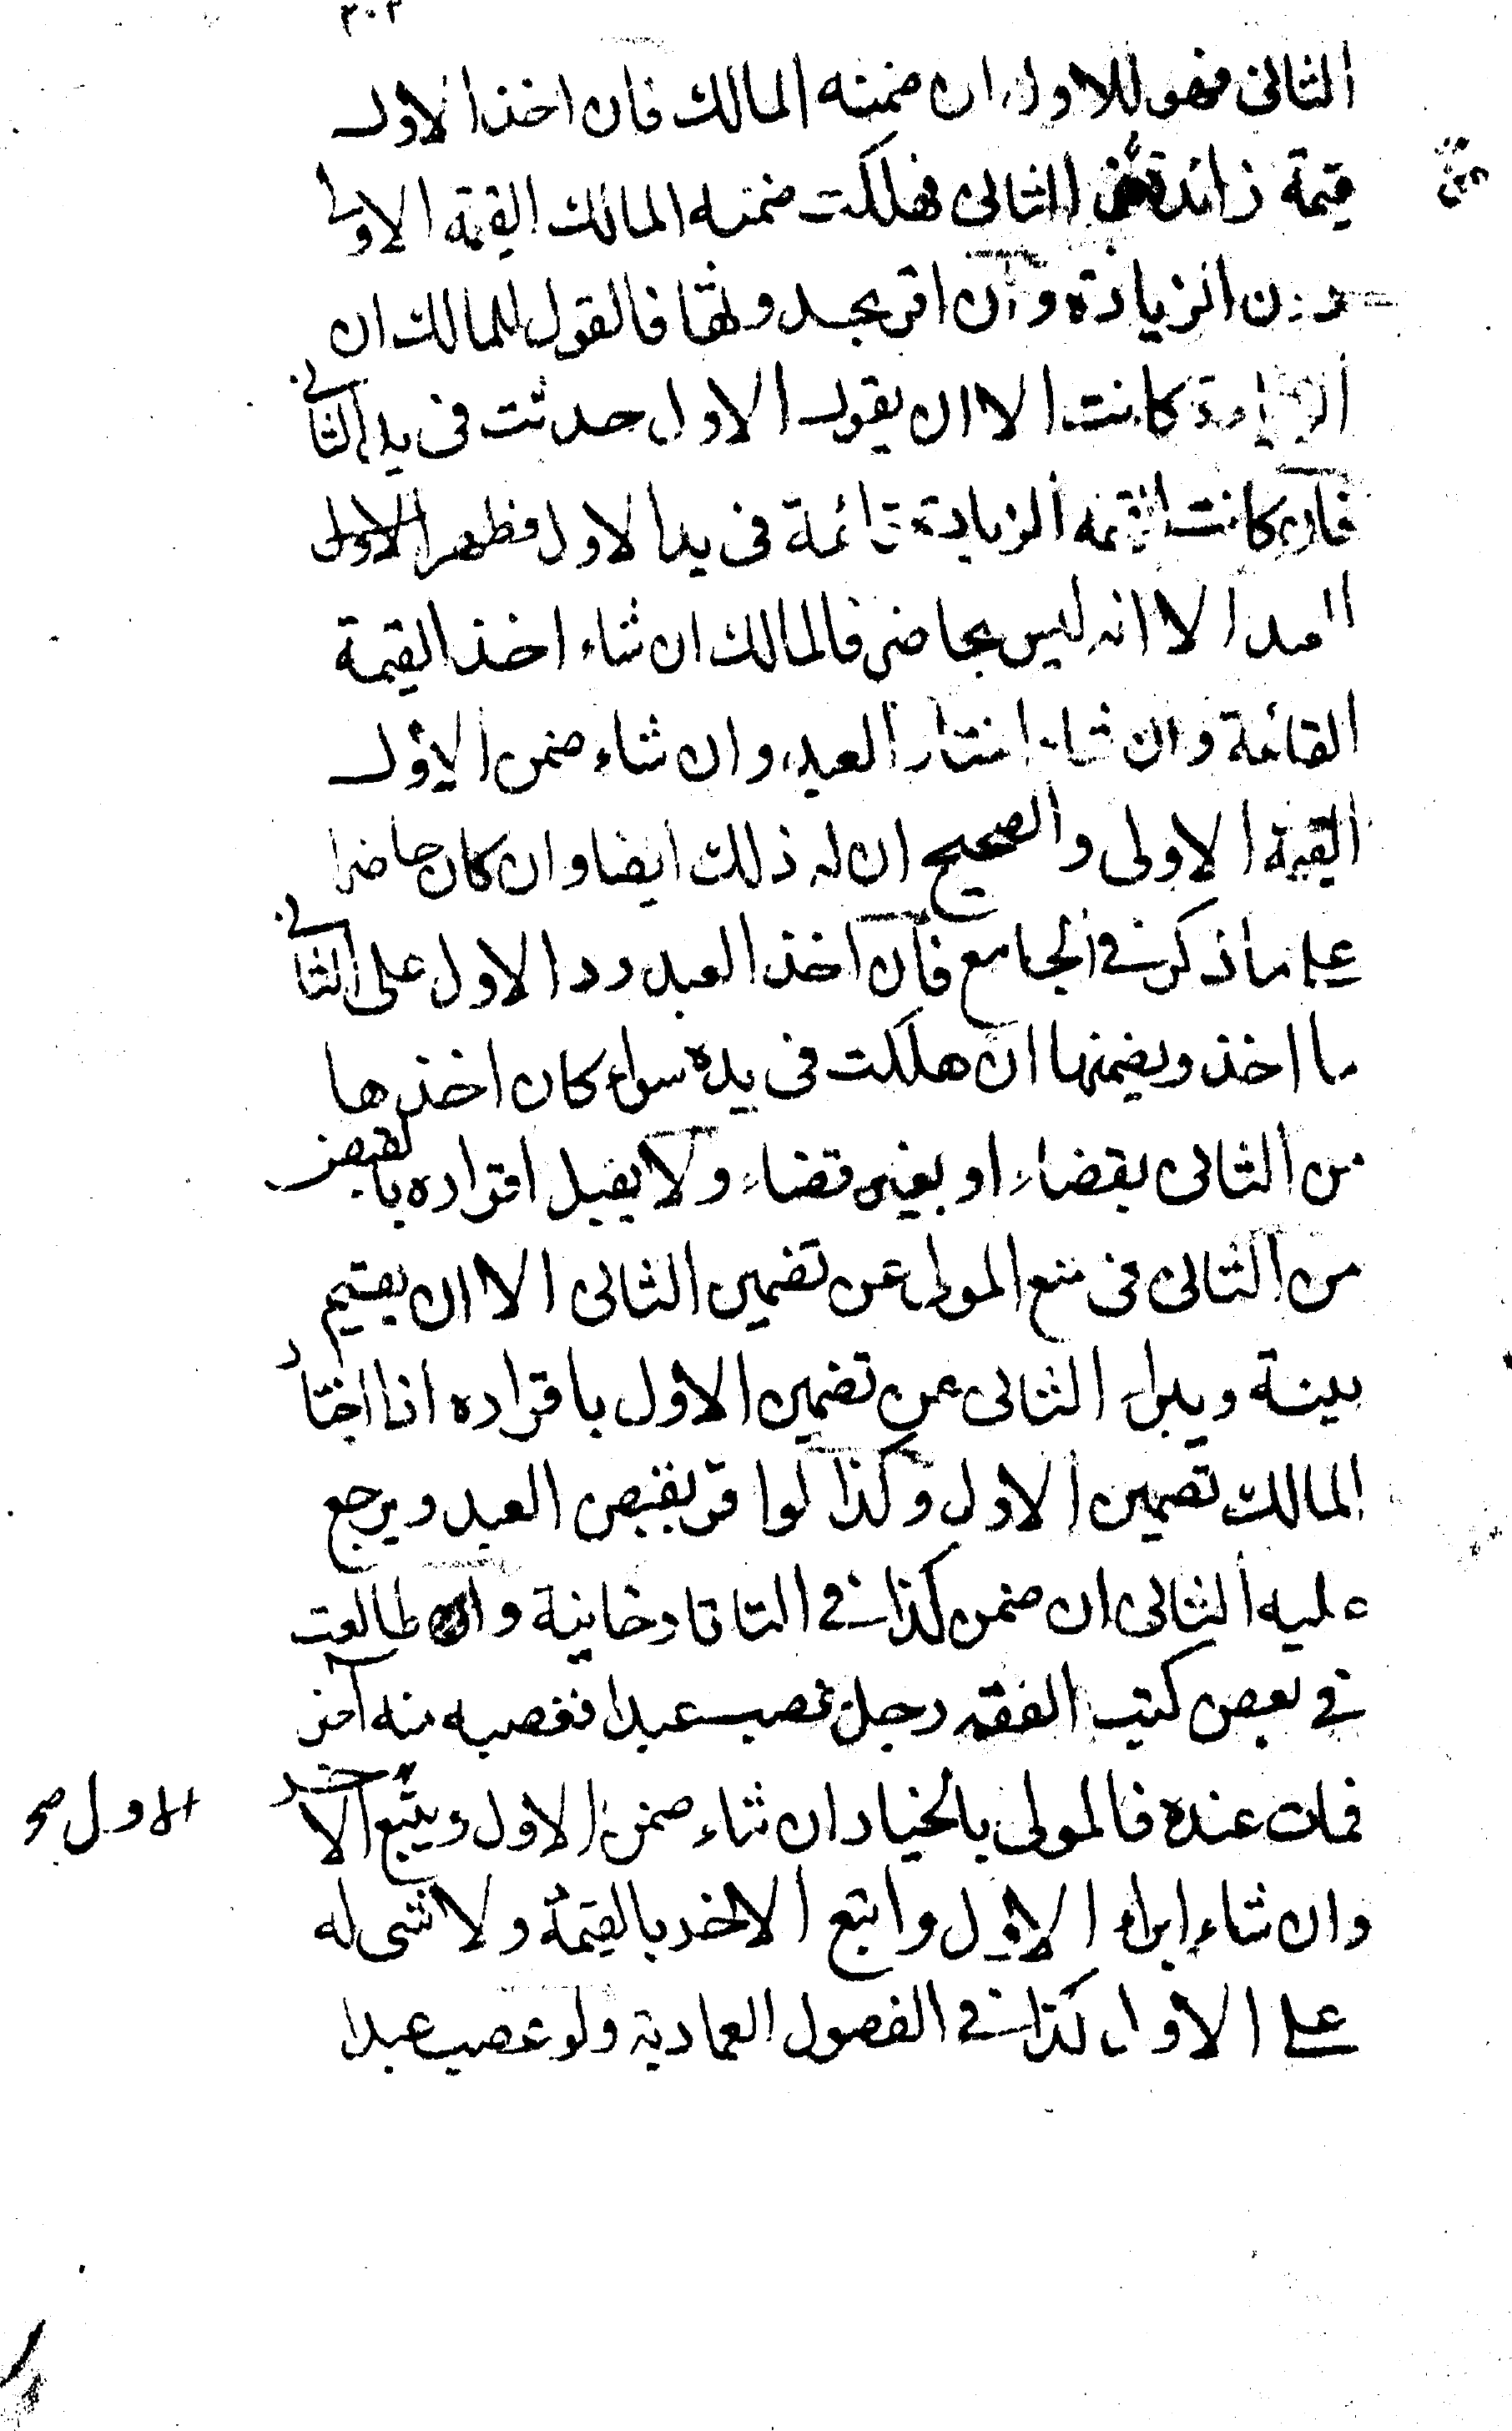 ٣٠٢
الثانى فهو للاول ان ضمنه المالك فان اخذ الاول
قيمة زائدة من الثانى فهلكت ضمنه المالك القيمة الاولى
دون الزيادة وان اقر بجدوثها فالقول للمالك ان
الزيادة كانت الا ان يقول الاول حدثت فى يد الثانى
فان كانت القيمة الزيادة قائمة فى يد الاول فظهر
العبد الا انه ليس بحاضر فالمالك ان شاء اخذ القيمة
القائمة وان شاء اختار العبد وان شاء ضمن الاول
القيمة الاولى والصحيح ان له ذلك ايضا وان كان حاضرا
على ما ذكر فى الجامع فان اخذ العبد رد الاول على الثانى
ما اخذ ويضمنها ان هلكت فى يده سواء كان اخذها
من الثانى بقضاء او بغير قضاء ولا يقبل اقراره بالقبض
من الثانى فى منع المولى عن تضمين الثانى الا ان يقيم
بينة ويبراء الثانى عن تضمين الاول باقراره اذا اختار
المالك تضمين الاول وكذا لو اقر بقبض العبد ويرجع
عليه الثانى ان ضمن كذا فى التاتارخانية وان طالعت
فى بعض كتب الفقه رجل غصب عبدا فغصبه منه آخر
فمات عنده فالمولى بالخيار ان شاء ضمن الاول ويتبع الآخر
الاول صح
وان شاء ابراء الاول واتبع الاخر بالقيمة ولا شى له
على الاول كذا فى الفصول العمادية ولو غصب عبدا